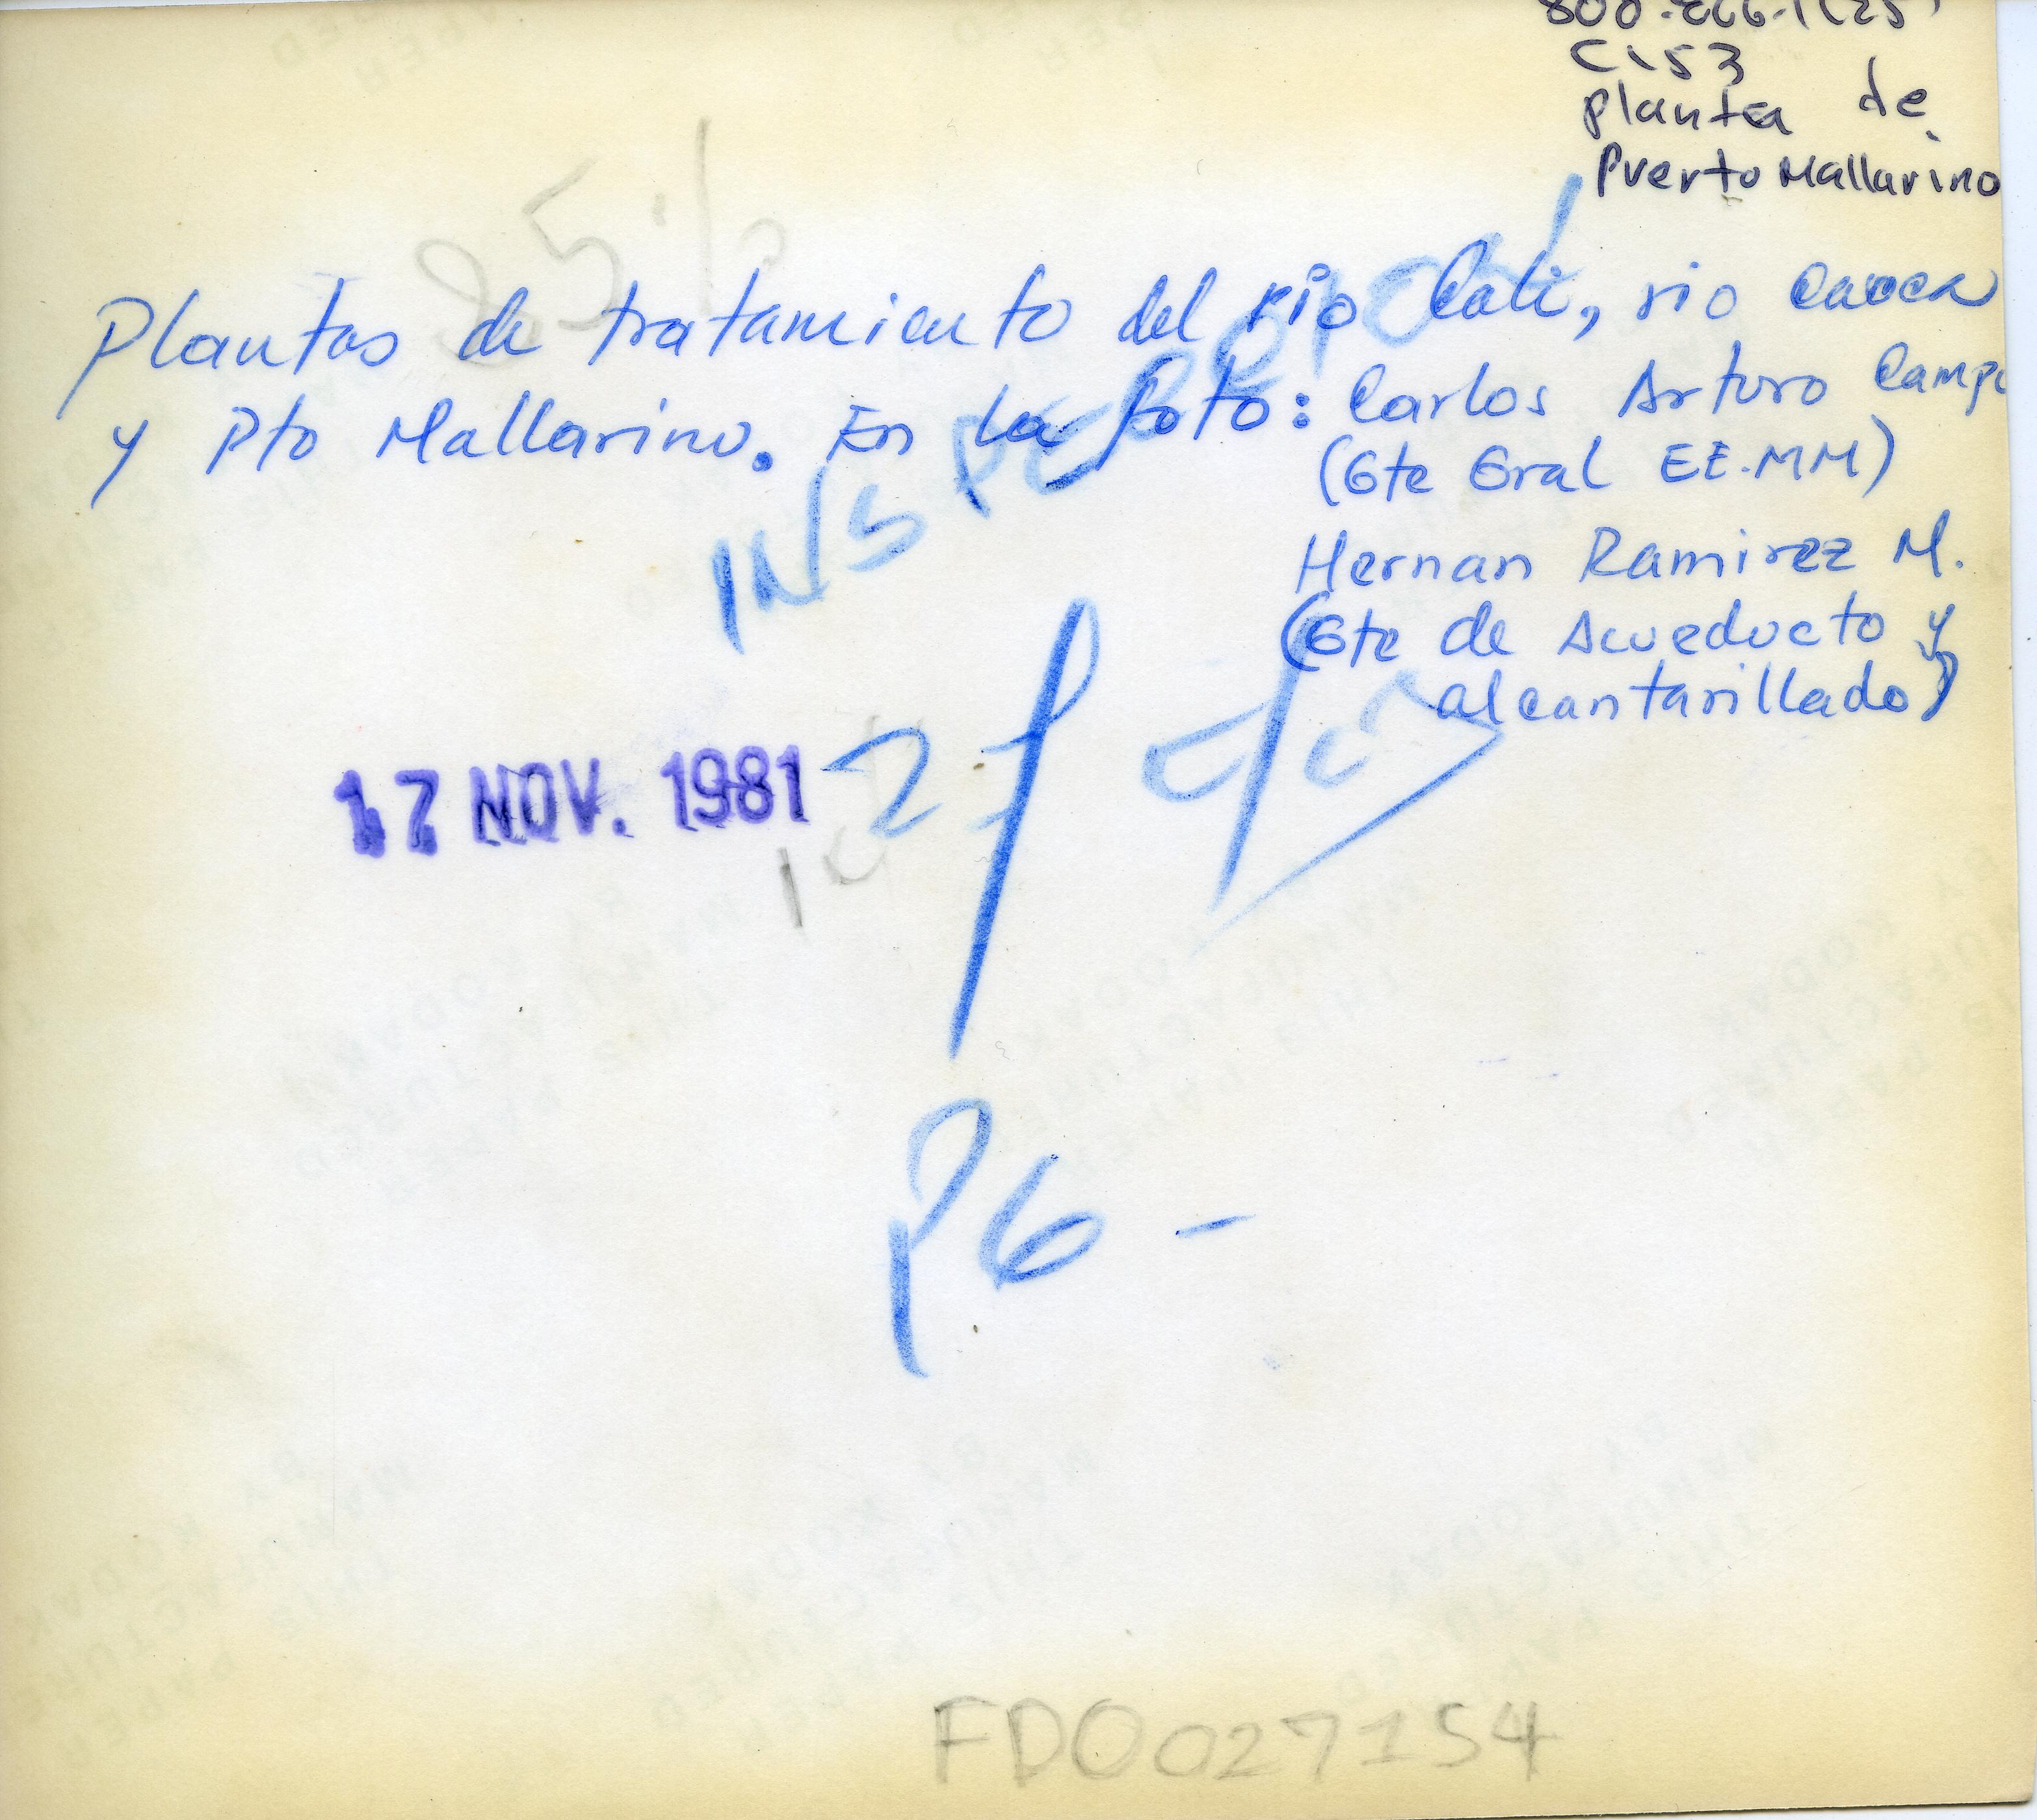 C153
planta de
Puerto Mallarino
85%
Plantas de tratamiento del rio Cali, rio Cauca
y Pto Mallarino. En la foto: Carlos Arturo Campo
(Gte Gral EE.MM)
Hernan Ramirez M.
(Gte de Acueducto y
alcantarillado)
17 NOV. 1981
2
P6 -
FDO027154